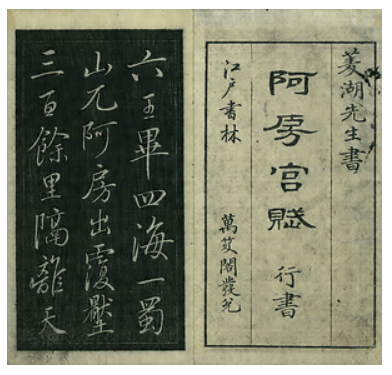 菱湖先生書
阿房宮賦 行書
江戸書林 萬笈閣發兌
六王畢四海一蜀
山兀阿房出覆壓
三百餘里隔離天